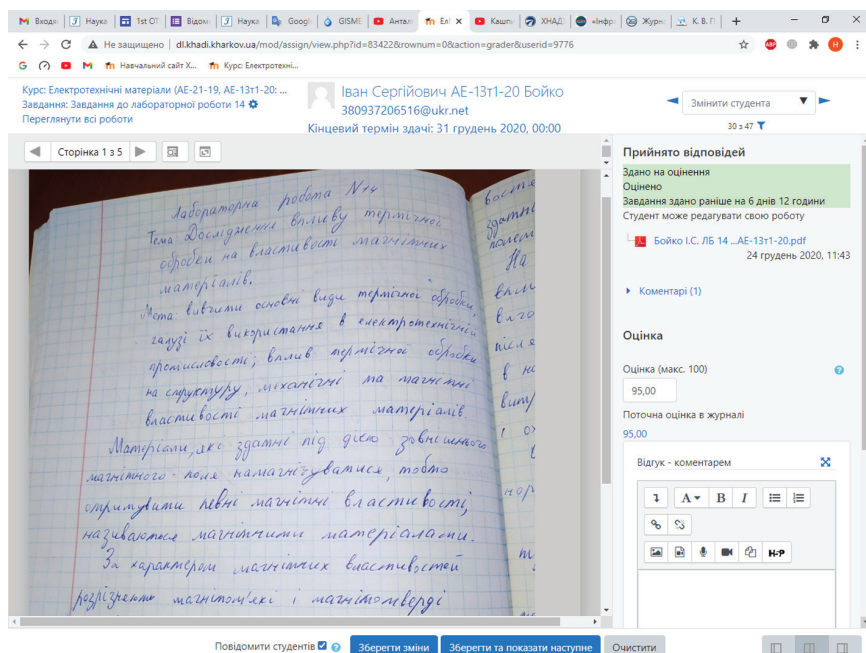 Входя
Наука
1st OT
Відом
Наука
Googl
GISME
Антал
Ел
Кашп
ХНАД
«Інфр
Журн
К. В. Г
Не защищено | dl.khadi.kharkov.ua/mod/assign/view.php?id=83422&rownum=0&action=grader&userid=9776
Навчальний сайт Х...
Курс: Електротехні...
Курс: Електротехнічні матеріали (АЕ-21-19, АЕ-13т1-20: ...
Завдання: Завдання до лабораторної роботи 14
Переглянути всі роботи
Іван Сергійович АЕ-13т1-20 Бойко
380937206516@ukr.net
Кінцевий термін здачі: 31 грудень 2020, 00:00
Змінити студента
30 з 47
Сторінка 1 з 5
Лабораторна робота N14
Тема Дослідження впливу термічної
обробки на властивості магнітних
матеріалів.
Мета: вивчити основні види термічної обробки,
галузі їх використання в електротехнічній
промисловості; вплив термічної обробки
на структуру, механічні та магнітні
властивості магнітних матеріалів.
Матеріали, які здатні під дією зовнішнього
магнітного поля намагнічуватися, тобто
отримувати певні магнітні властивості,
називаються магнітними матеріалами.
За характером магнітних властивостей
розрізняють магнітом'які і магнітотверді
Прийнято відповідей
Здано на оцінення
Оцінено
Завдання здано раніше на 6 днів 12 години
Студент може редагувати свою роботу
Бойко І.С. ЛБ 14 ...АЕ-13т1-20.pdf
24 грудень 2020, 11:43
Коментарі (1)
Оцінка
Оцінка (макс. 100)
95,00
Поточна оцінка в журналі
95,00
Відгук - коментарем
A B I
H-P
Повідомити студентів
Зберегти зміни
Зберегти та показати наступне
Очистити